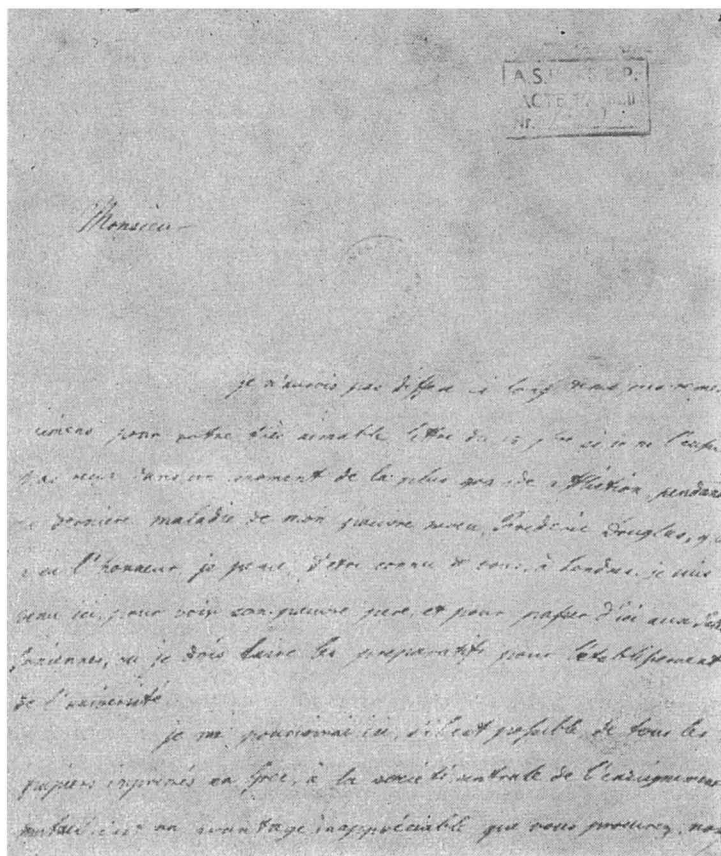 A.S.
Nr.
Monsieur
je n'aurois pas differé si long tems mes remer
cimens pour votre très aimable lettre du si je ne l'eusse
pas reçu dans un moment de la plus affliction, pendant
derniere maladie de mon pauvre neveu, Frederic Douglas, q
eu l'honneur, je pense, d'etre connu de vous, à Londres. je suis
venu ici, pour voir son pauvre pere, et pour passer d'ici aux
Ioniennes, où je dois faire les preparatifs pour l'etablissement
de l'université
je me pourvoirai ici, s'il est possible, de tous les
papiers imprimés en Grec, à la societé centrale de l'enseignement
mutuel. c'est un avantage inappréciable que vous procurez, nou